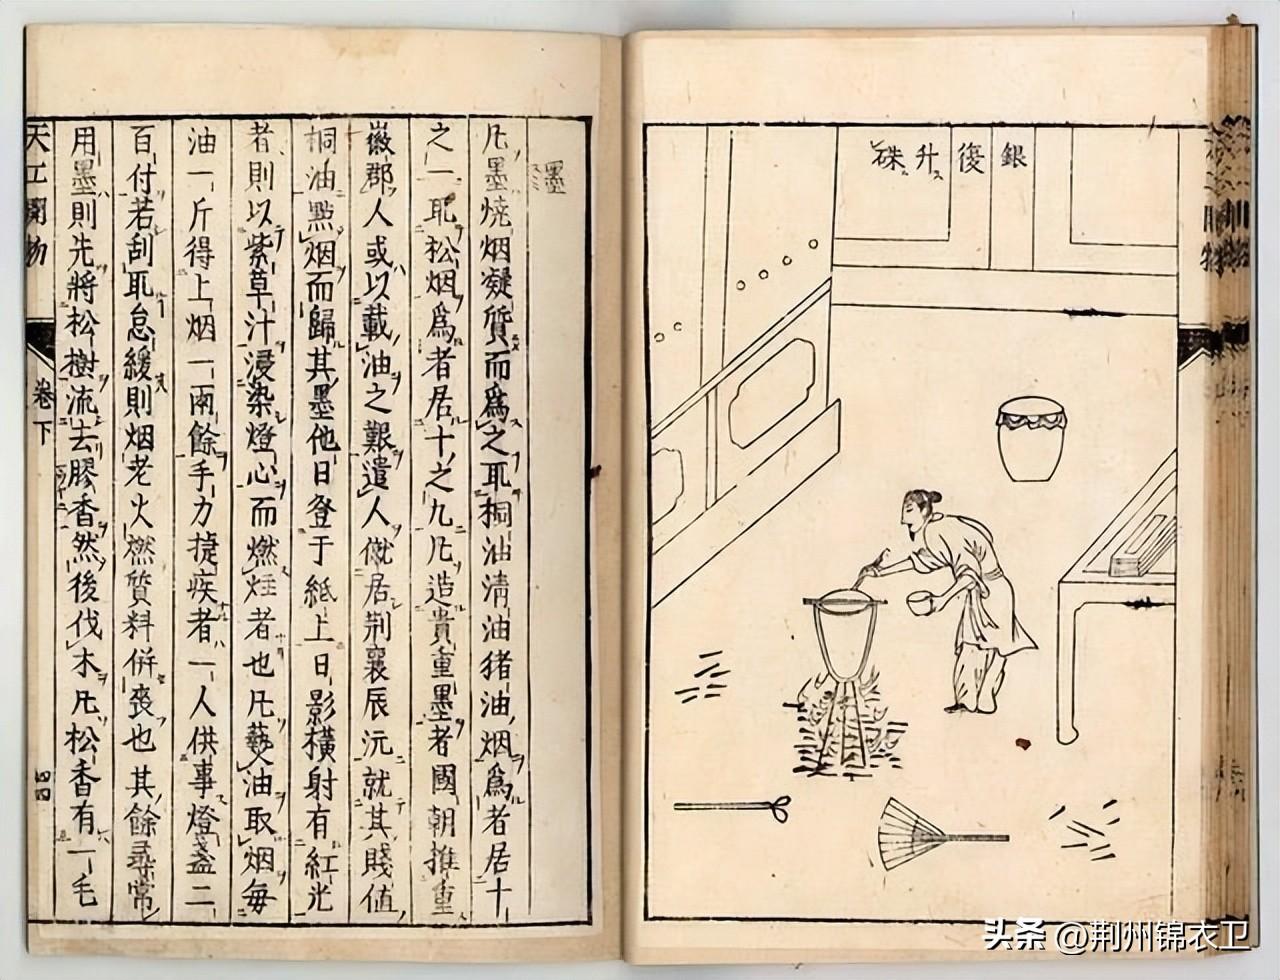 銀復升硃
墨
凡墨燒烟凝質而爲之耴桐油清油猪油烟爲者居十
之一耴松烟爲者居十之九凡造貴重墨者國朝推重
徽郡人或以載油之艱遣人僦居荆襄辰沅就其賤值
桐油點烟而歸其墨他日登于紙上日影橫射有紅光
者則以紫草汁浸染燈心而燃炷者也凡爇油取烟每
油一斤得上烟一兩餘手力捷疾者一人供事燈盞二
百付若刮耴怠緩則烟老火燃質料併喪也其餘尋常
用墨則先將松樹流去膠香然後伐木凡松香有一毛
天工開物 卷下 四四
头条 @荆州锦衣卫